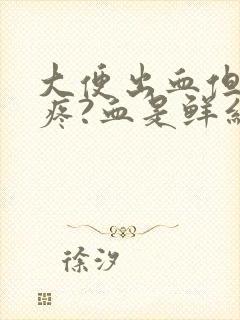 大便出血但
疼?血是鲜
徐汐